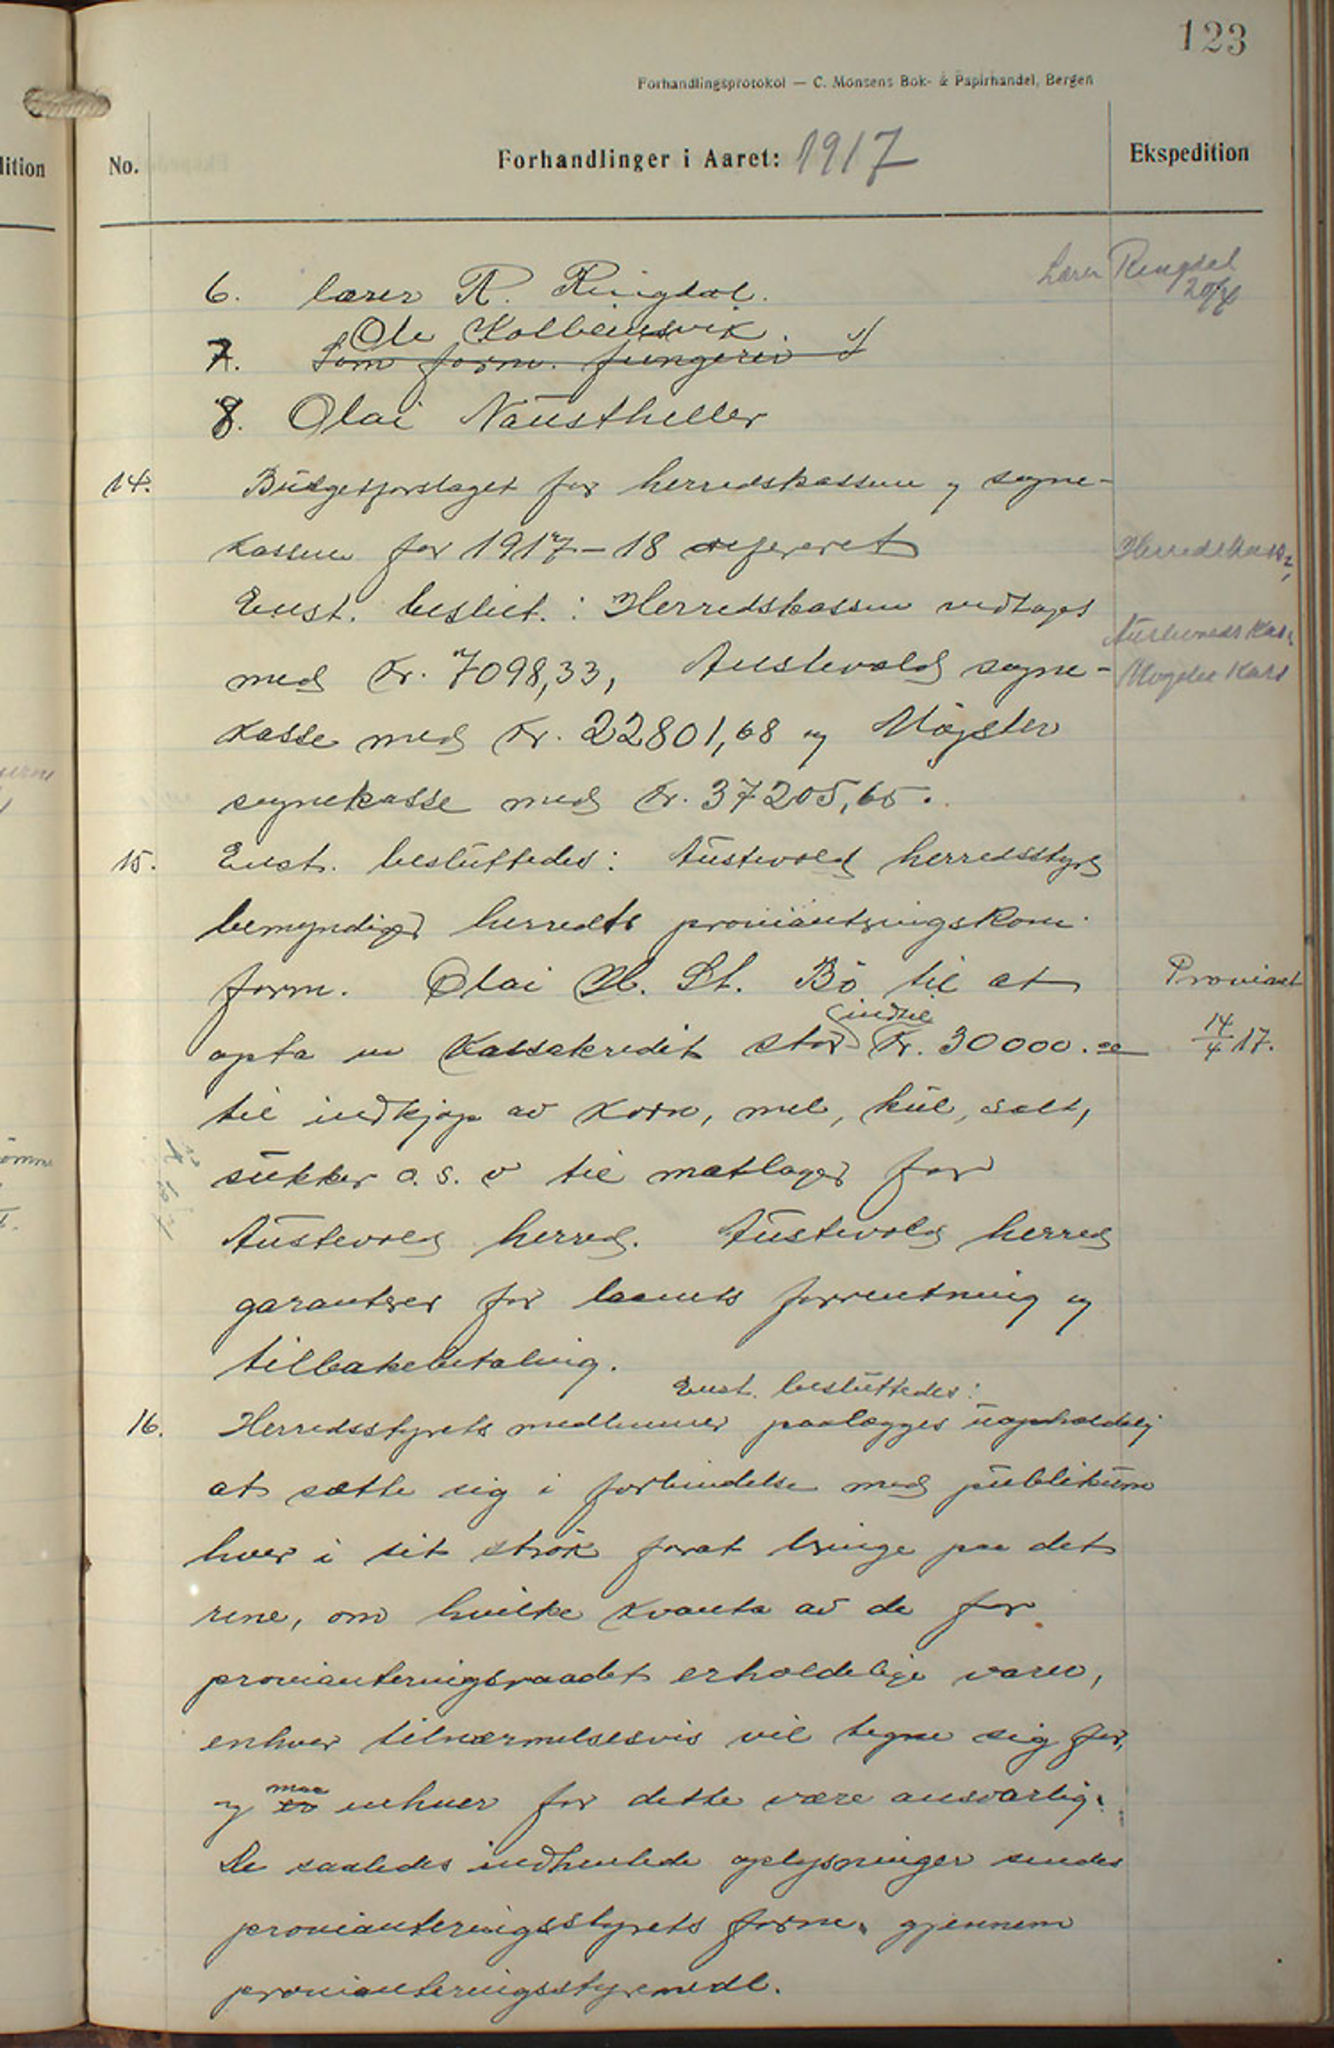 123
Forhandlingsprotokol — C. Monsens Bok- & Papirhandel, Bergen
dition
No.
Forhandlinger i Aaret: 1917
Ekspedition
6. lærer R. Ringdal.
Lærer Ringdal
20/4
Ole Kolbeinsvik.
7. Som form. fungerer
8. Olai Naustheller
14. Budgetforslaget for herredskassen og sogne-
kassen for 1917-18 refereret
Herredskass
Enst. beslut.: Herredskassen vedtages
med kr. 7098,33, Austevold sogne-
Austevolds Kas
Møgster Kass
kasse med kr. 22801,68 og Møgster
sognekasse med kr. 37205,65.
15. Enst. besluttedes: Austevold herredsstyre
bemyndiger herredets provianteringskom.
form. Olai H. St. Bö til at
Proviant
indtil
opta en kassakredit stor kr. 30000.00
14/4 17.
til indkjøp av korn, mel, kul, salt,
sukker o.s.v til matlager for
Austevold herred. Austevold herred
garanterer for laanets forrentning og
tilbakebetaling.
Enst. besluttedes:
16. Herredsstyrets medlemmer paalægges uopholdelig
at sætte sig i forbindelse med publikum
hver i sit strök forat bringe paa det
rene, om hvilke kvanta av de for
provianteringsraadet erholdelige varer,
enhver tilnærmelsesvis vil tegne sig for,
maa
og er enhver for dette være ansvarlig.
De saaledes indhentede oplysninger sendes
provianteringsstyrets form. gjennem
provianteringsstyremedl.